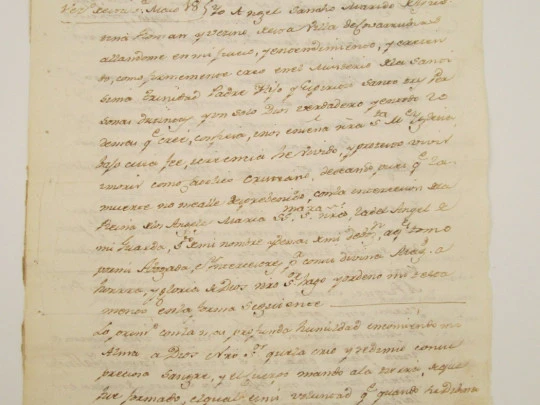 Yo Angel Sancho Marido de
Roman y vecino de esta Villa de Covarrubias
allandome en mi juicio, y entendimiento, y creien
to, como firmemente creo en el Misterio de la Santi
sima Trinidad Padre Hijo y Espiritu Santo tres Per
sonas distintas y un solo Dios verdadero y en todo lo
demas q.e cree, confiesa, y nos enseña nra S.ta M.e Yglesia
bajo cuia fee, y creencia he vivido, y protesto vivir
y morir como Catolico Cristiano, deseando pues q.e la
muerte no me alle desprevenido, con la intercesion de la
Reina de los Angeles Maria SS. S.ra nra, la del Angel de
mi Guarda, S.to de mi nombre y demas de mi debo.n, a q.s tomo
por mis Abogados, e Yntercesores p.a con su divina Mag.d a
honrra, y gloria de Dios nro S.r hago y ordeno mi testa
mento en la forma siguiente
Lo primo con la mas profunda humildad encomiendo mi
Alma a Dios Nro S.r que la crio y redimio con su
preciosa Sangre, y el cuerpo mando a la tierra, de que
fue formado, el qual es mi voluntad q.e quando la divina